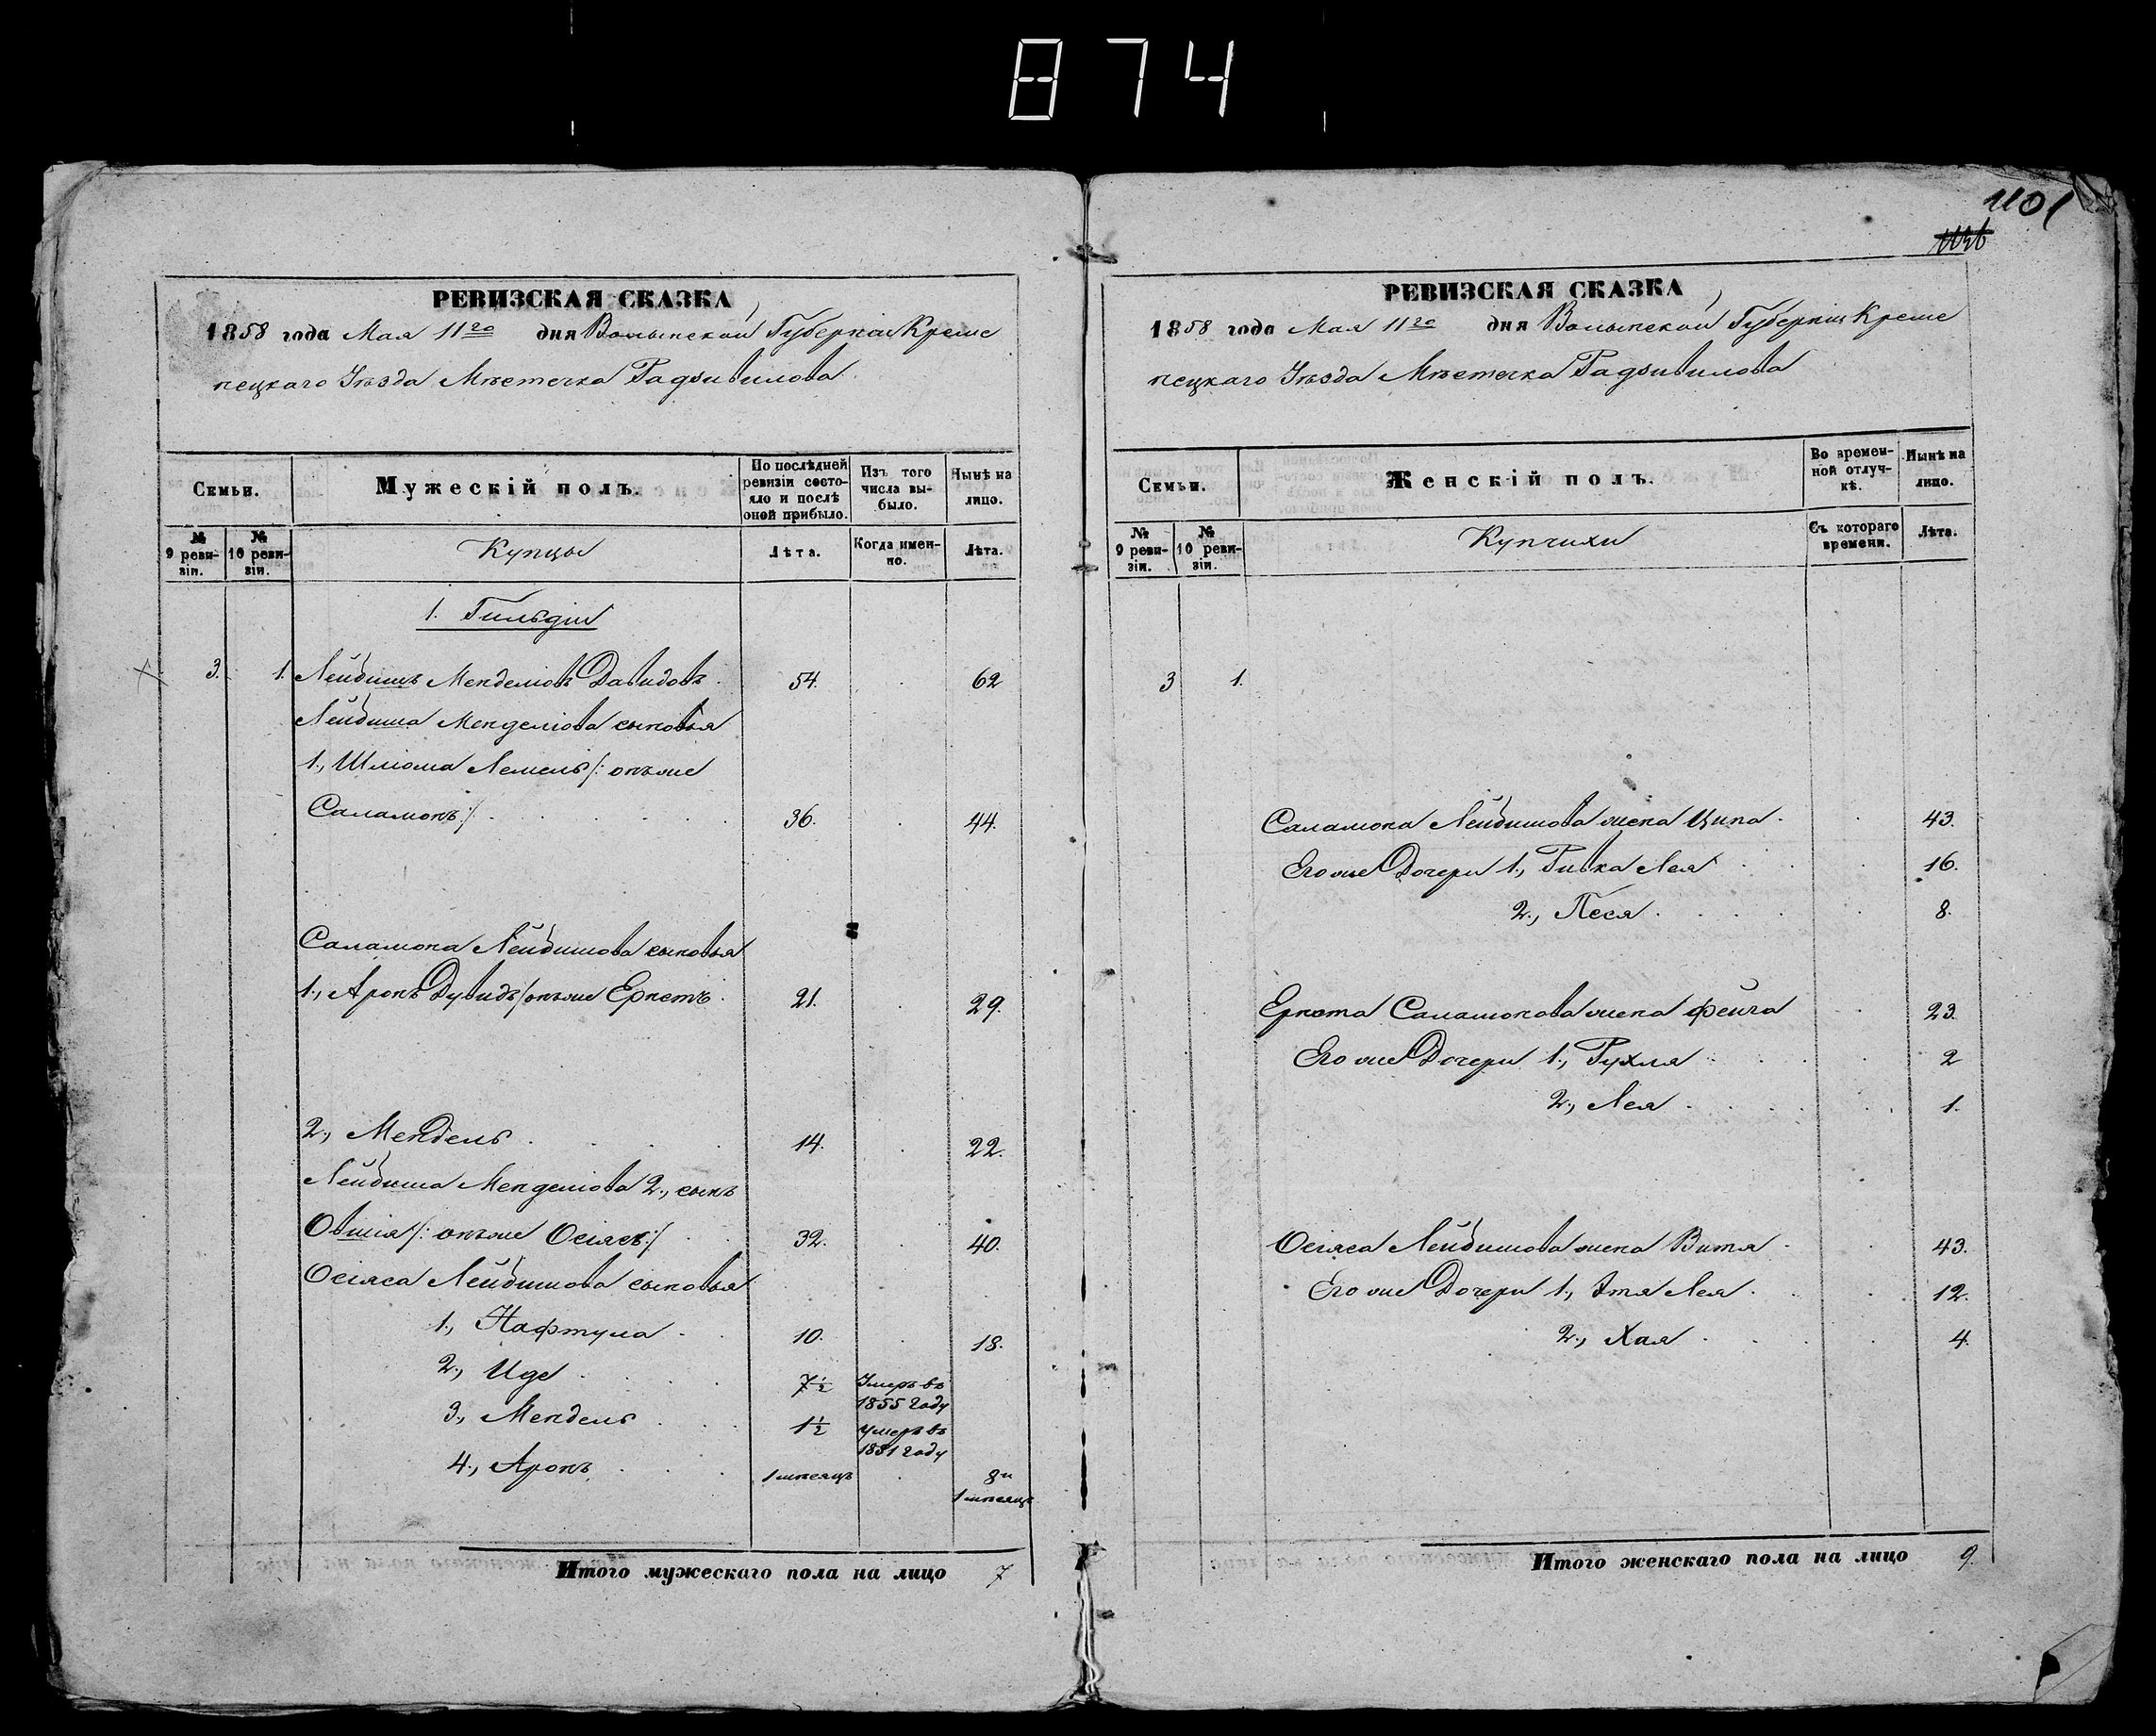 874
1101
РЕВИЗСКАЯ СКАЗКА
1858 года Мая 11го дня Волынской Губерніи Креме
нецкаго Уѣзда Мѣстечка Радзивилова
Семьи.
Мужескій полъ.
По послѣдней ревизіи состояло и послѣ оной прибыло.
Изъ того числа выбыло.
Нынѣ на лицо.
№ 9 ревизіи.
№ 10 ревизіи.
Купцы
Лѣта.
Когда именно.
Лѣта.
1. Гильдіи
3. 1. Лейбишъ Менделіовъ Давидовъ. 54. 62
Лейбиша Менделіова сыновья
1., Шліома Лемель /: онъ же
Саламонъ :/ 36. 44.
Саламона Лейбишова сыновья
1., Аронъ Дувидъ /онъ же Ернстъ. 21. 29.
2., Мендель 14. 22.
Лейбиша Менделіова 2., сынъ
Овшія /: онъ же Осіясъ :/ 32. 40.
Осіяса Лейбишова сыновья
1., Нафтула 10. 18.
2., Иде 7½ Умеръ въ
1855 году
3., Мендель 1½ умеръ въ
1851 году
4., Аронъ 1 мѣсяцъ 8 и
1 мѣсяцъ
Итого мужескаго пола на лицо 7
РЕВИЗСКАЯ СКАЗКА
1858 года Мая 11го дня Волынской Губерніи Креме
нецкаго Уѣзда Мѣстечка Радзивилова
Семьи.
Женскій полъ.
Во временной отлучкѣ.
Нынѣ на лицо.
№ 9 ревизіи.
№ 10 ревизіи.
Купчихи
Съ котораго времени.
Лѣта.
3 1.
Саламона Лейбишова жена Ципа 43.
Его же Дочери 1., Ривка Лея 16.
2., Песя 8.
Ернста Саламонова жена Фейга 23.
Его же Дочери 1., Рухля 2
2., Лея 1.
Осіяса Лейбишова жена Витя 43.
Его же Дочери 1., Этя Лея 12.
2., Хая 4.
Итого женскаго пола на лицо 9.